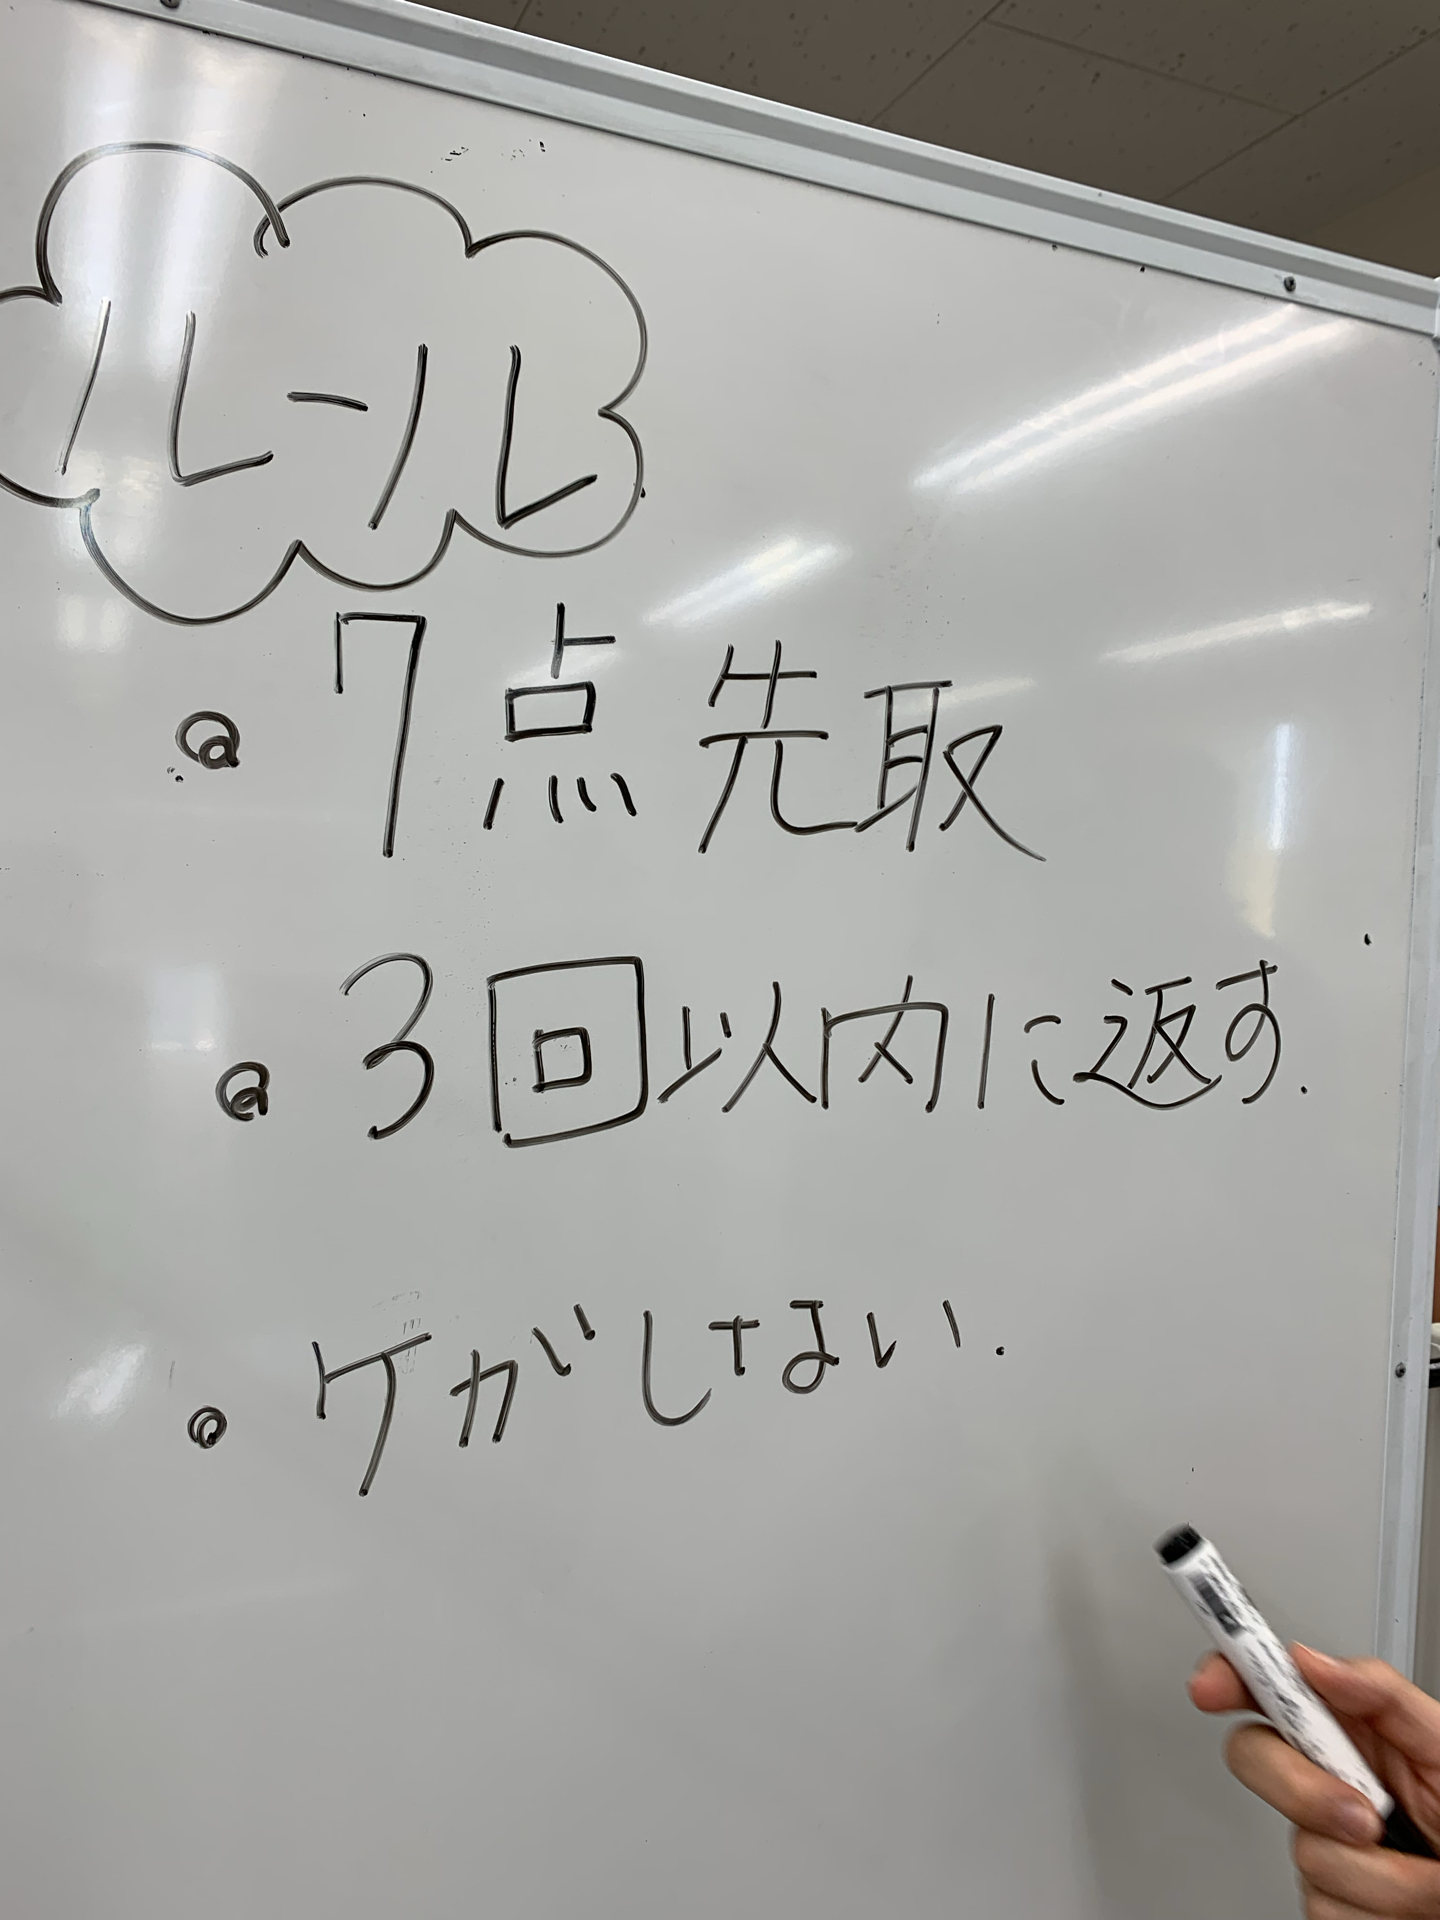 ルール
• 7点先取
• 3回以内に返す.
• ケガしない.